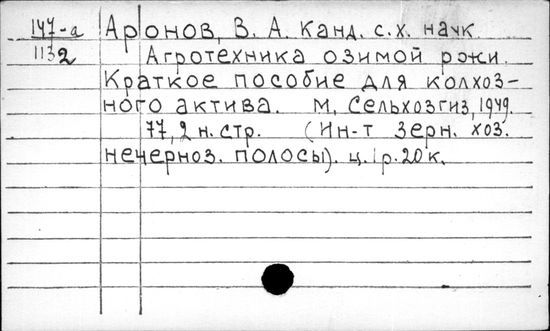 147-а
1132
Аронов, В. А. Канд. с.х. наук.
Агротехника озимой ржи.
Краткое пособие для колхоз-
ного актива. М, Сельхозгиз, 1949.
77, 2 н. стр. (Ин-т зерн. хоз.
нечерноз. полосы). ц. 1 р. 20 к.